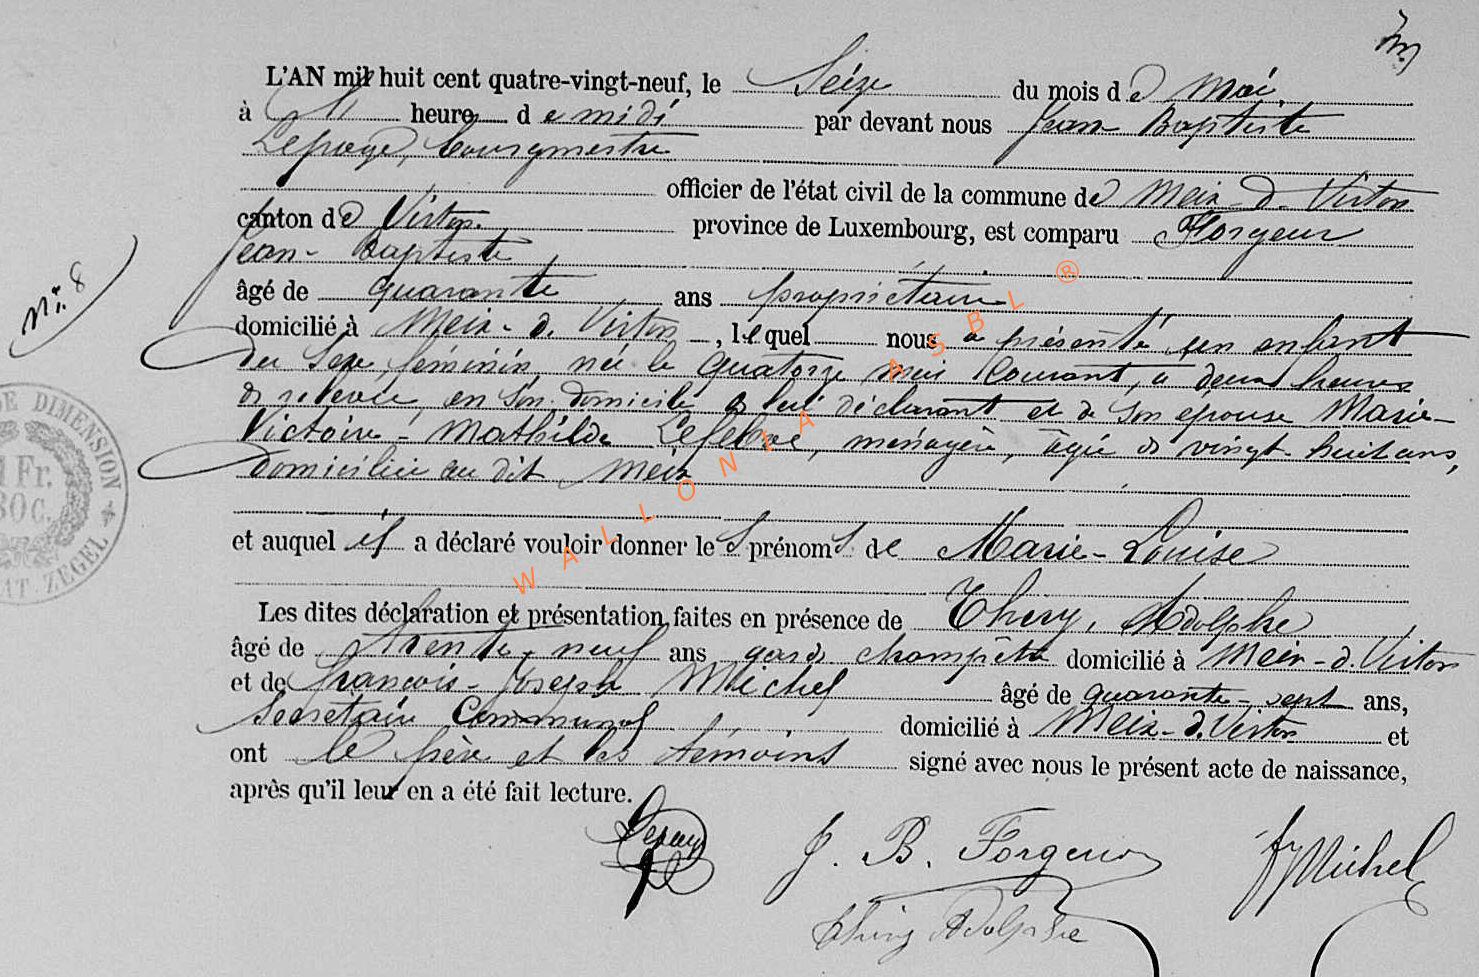 L'AN mil huit cent quatre-vingt-neuf, le Seize du mois de Mai.
à 11 heure de midi par devant nous Jean Baptiste
Lepage, bourgmestre
officier de l'état civil de la commune de Meix-d-Virton
canton de Virton. province de Luxembourg, est comparu Forgeur
Jean-Baptiste
âgé de quarante ans propriétaire
domicilié à Meix-d. Virton, lequel nous a présenté un enfant
du sexe féminin, né le quatorze mai Courant, à deux heures
de relevée, en son domicile de lui déclarant et de son épouse Marie-
Victoire-Mathilde Lefebvre, ménagère, agée de vingt-huit ans,
domiciliée au dit Meix
N°. 8
et auquel il a déclaré vouloir donner les prénoms de Marie-Louise
Les dites déclaration et présentation faites en présence de Thiry, Adolphe
âgé de trente-neuf ans garde champêtre domicilié à Meix-d.Virton
et de François-Joseph Michel âgé de quarante-sept ans,
Secrétaire Communal domicilié à Meix-d.Virton et
ont le père et les témoins signé avec nous le présent acte de naissance,
après qu'il leur en a été fait lecture.
Lepage J. B. Forgeur Michel
Thiry Adolphe
DE DIMENSION
1 Fr.
30c.
ZEGEL
WALLONIA ASBL ®